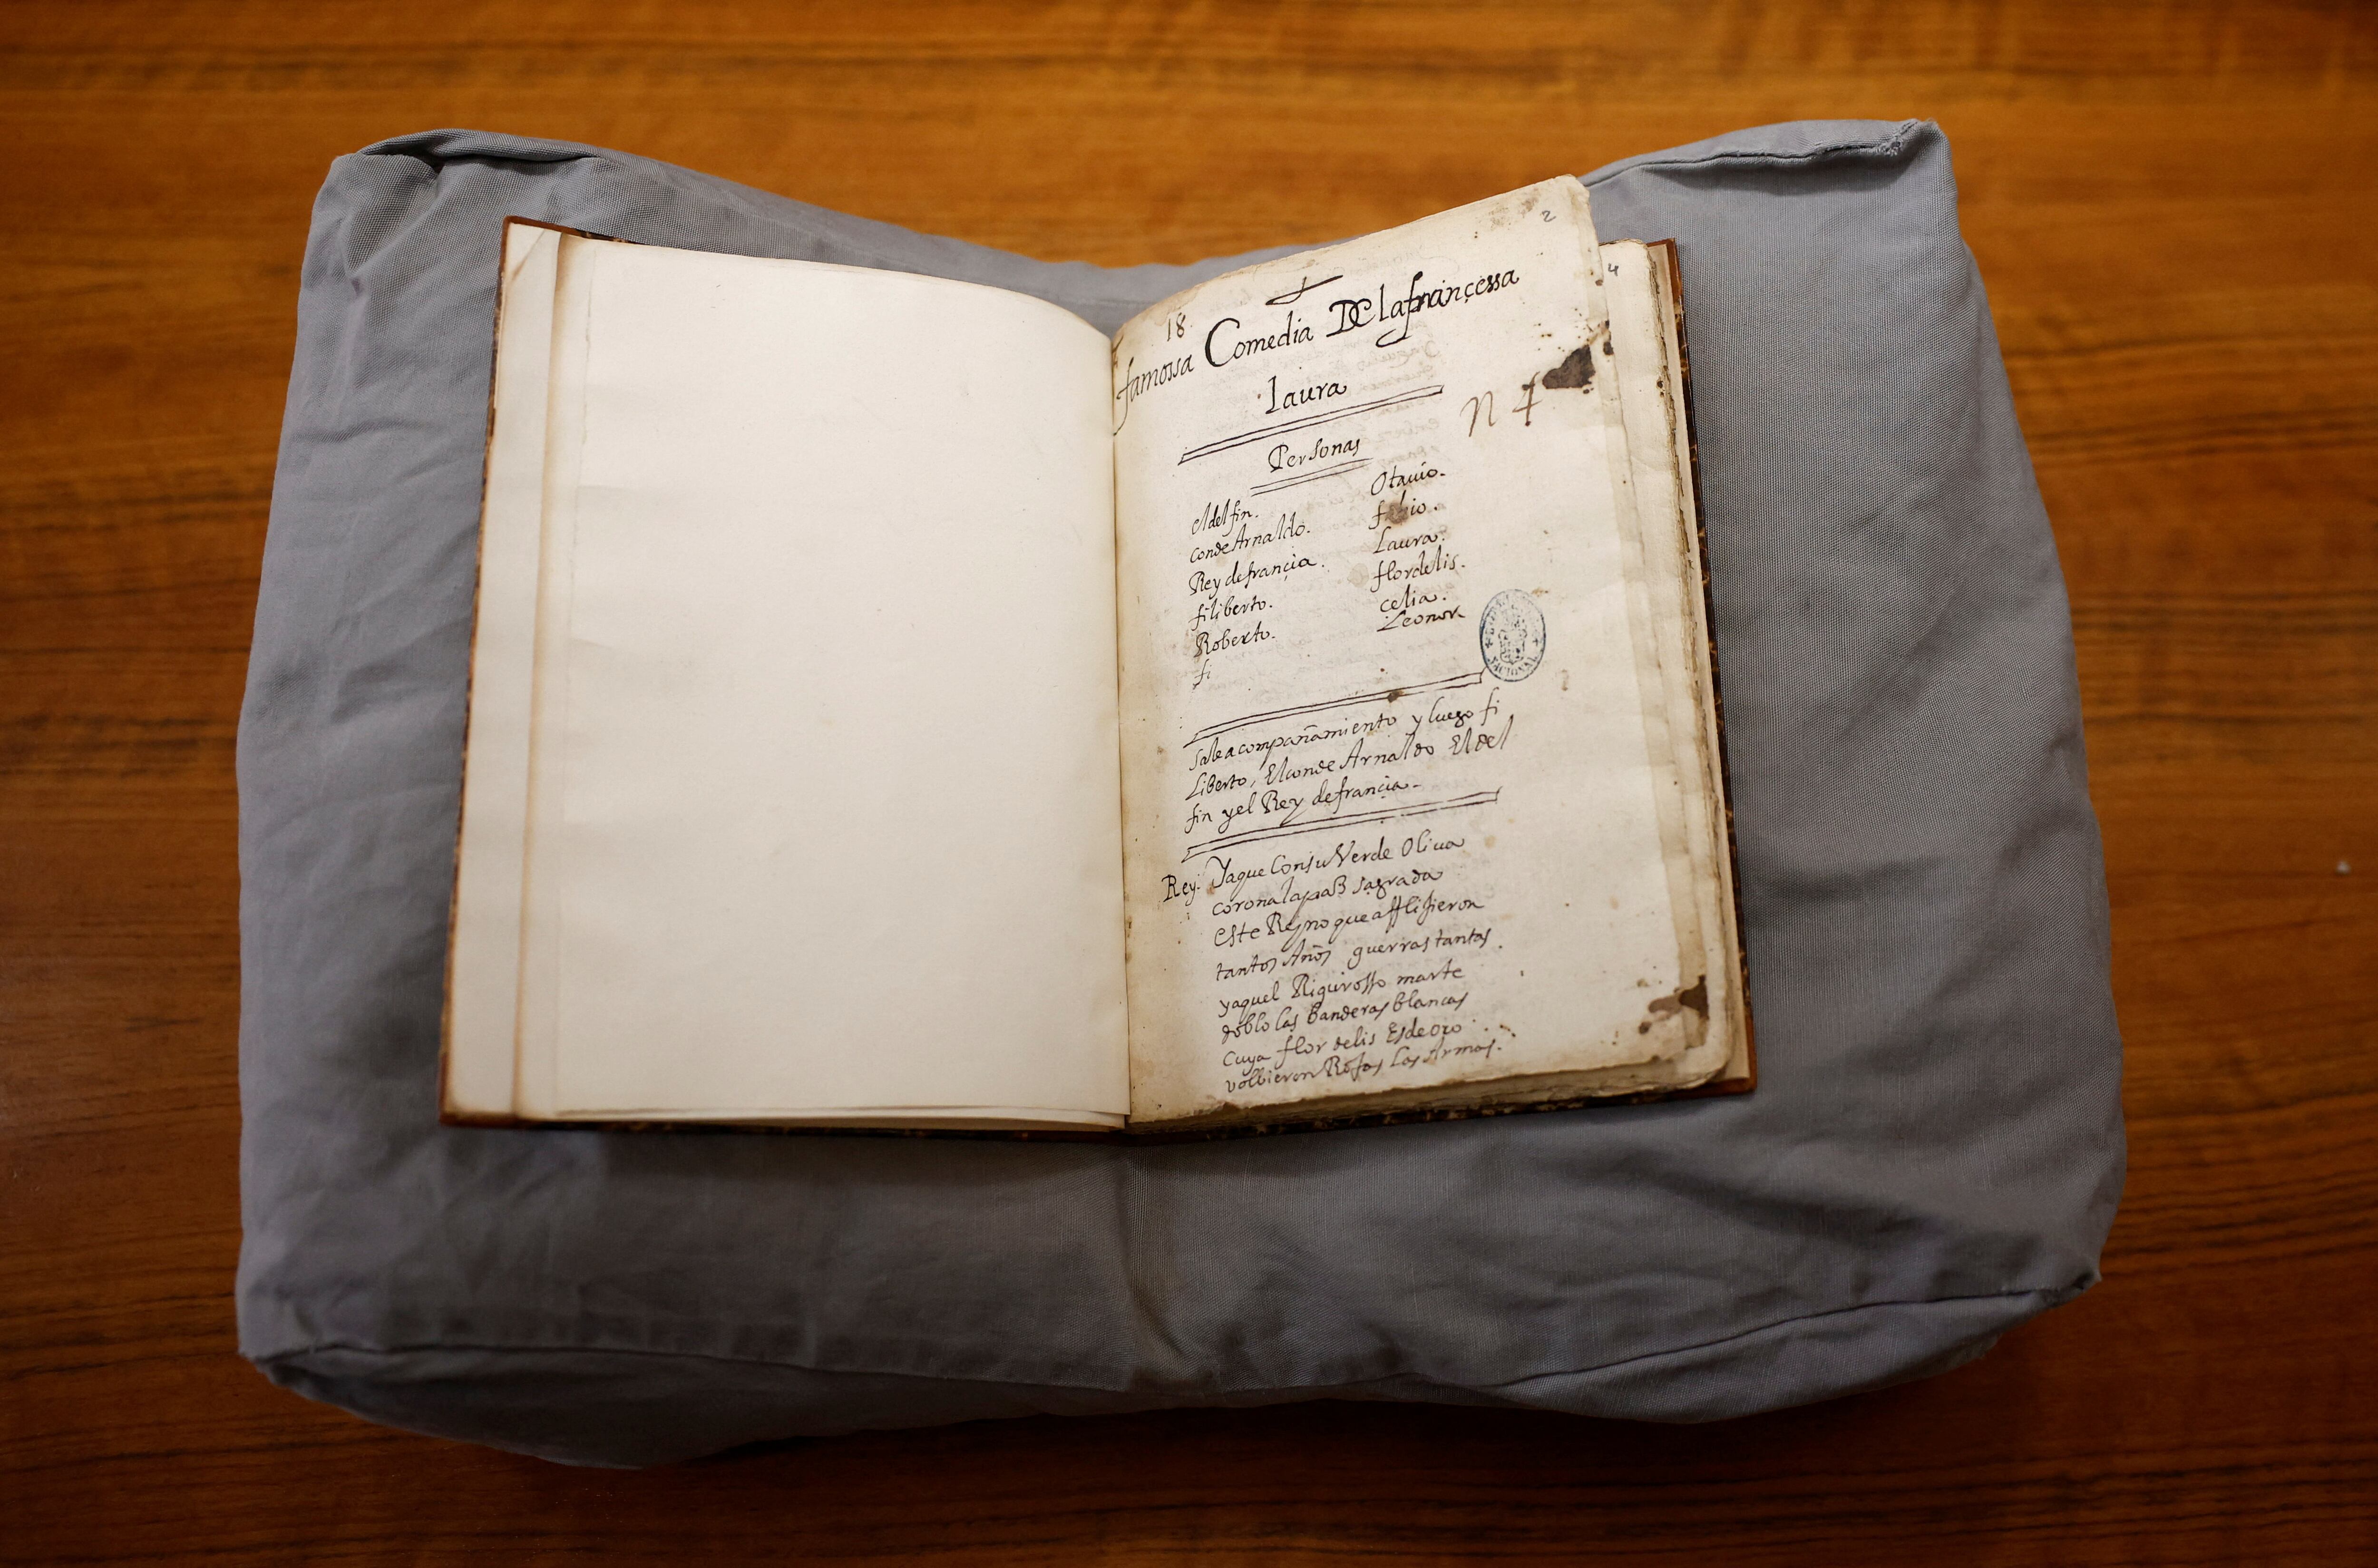 2
4
18
famossa Comedia De lafrançessa
laura
n 4
Personas
eldelfin.
conde Arnaldo.
Rey defrançia.
filiberto.
Roberto.
fi
Otauio.
fabio.
Laura.
flordelis.
celia.
Leonor
Sale acompañamiento y luego fi
Liberto, Elconde Arnaldo El del
fin y el Rey defrançia.
Rey. Yaque Consu Verde Oliua
corona la paz sagrada
este Reyno que afflijieron
tantos Años guerras tantas.
yaquel Riguroso marte
doblo las banderas blancas
Cuya flor delis Es de oro
volbieron Rojas Las Armas.
NACIONAL